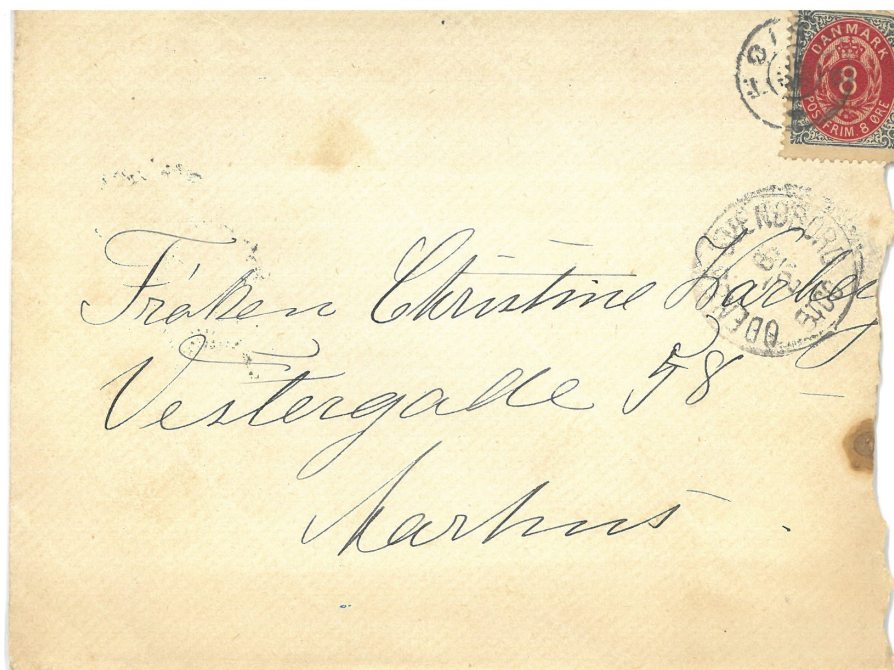 DANMARK
8
POSTFRIM. 8 ØRE
Frøken Christine
Vestergade 58
Aarhus